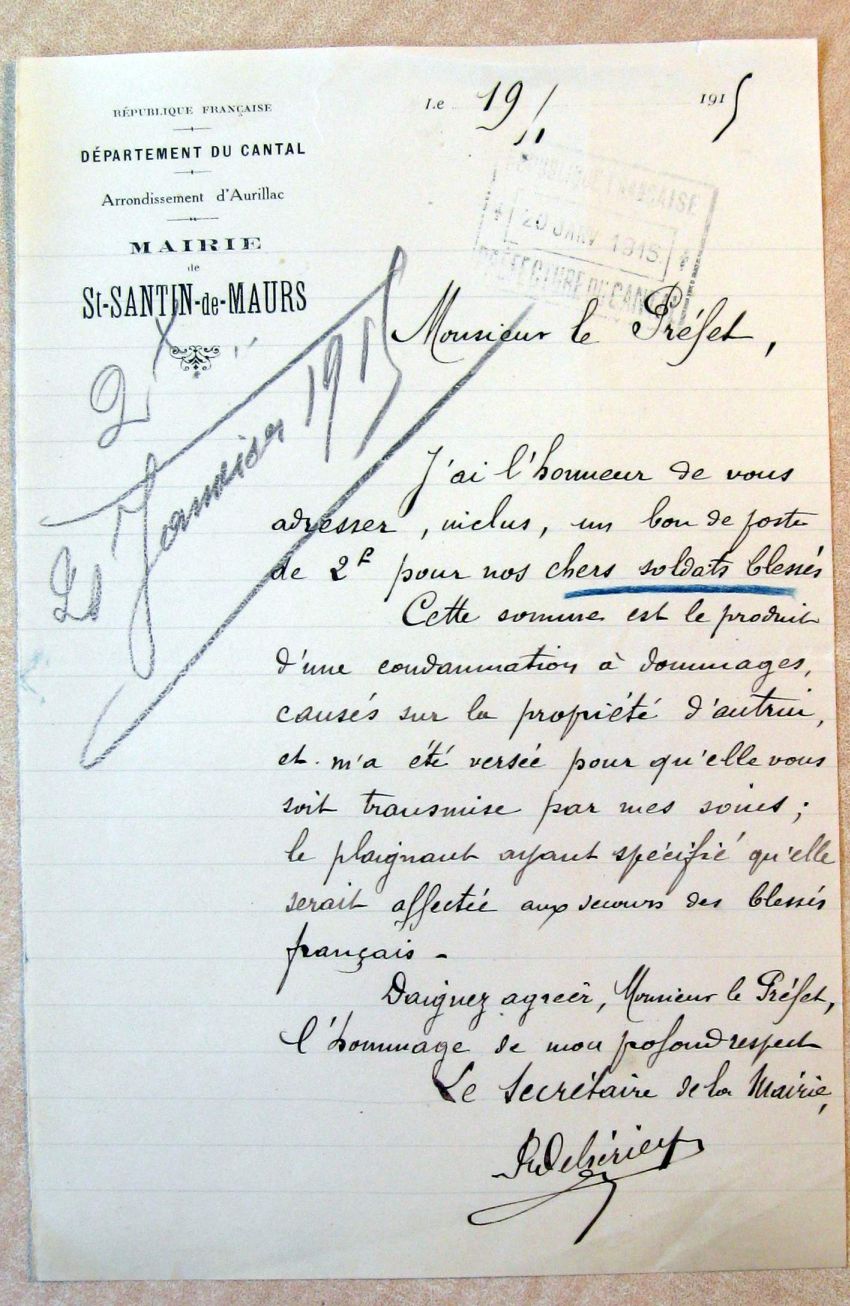 RÉPUBLIQUE FRANÇAISE
DÉPARTEMENT DU CANTAL
Arrondissement d'Aurillac
MAIRIE
de
St-SANTIN-de-MAURS
Le 19/1 1915
RÉPUBLIQUE FRANÇAISE
20 JANV 1915
PRÉFECTURE DU CANTAL
2
Janvier 1915
Monsieur le Préfet,
J'ai l'honneur de vous
adresser, inclus, un bon de poste
de 2f pour nos chers soldats blessés
Cette somme est le produit
d'une condamnation à dommages,
causés sur la propiété d'autrui,
et m'a été versée pour qu'elle vous
soit transmise par mes soins ;
le plaignant ayant spécifié qu'elle
serait affectée aux secours des blessés
français -
Daignez agréer, Monsieur le Préfet,
l'hommage de mon pofond respect
Le Secrétaire de la Mairie,